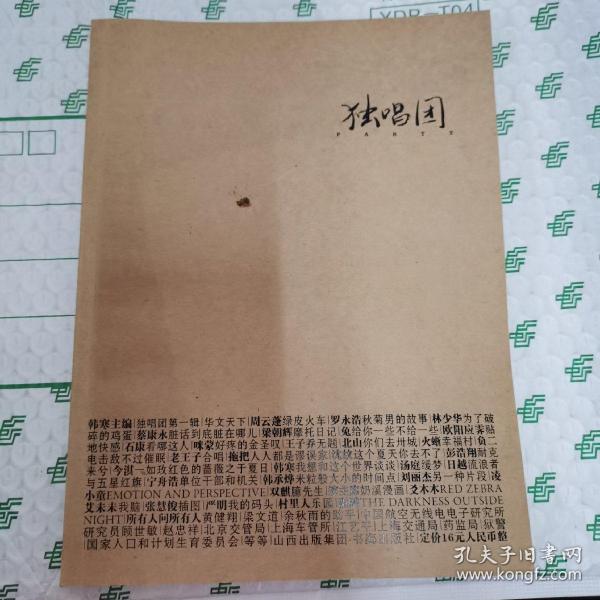 独唱团
PARTY
韩寒主编|独唱团第一辑|华文天下|周云蓬绿皮火车|罗永浩秋菊男的故事|林少华为了破
碎的鸡蛋|蔡康永脏话到底脏在哪儿|梁朝辉摩托日记|兔给你一些不给一些|欧阳应霁贴
地快感|石康看哪这人|咪蒙好疼的金圣叹|王子乔无题|北山你们去卅城|火鳅幸福村|负二
电击敌不过催眠|老王子合唱|拖把人人都是谬误家|坟坟这个夏天你去不了|彭浩翔耐克
来兮|今淇一如玫红色的蔷薇之于夏日|韩寒我想和这个世界谈谈|汤庭缓梦|日越流浪者
与五星红旗|宁舟浩单位干部和机关|韩承烨米粒般大小的时间点|刘丽杰另一种片段|凌
小童EMOTION AND PERSPECTIVE|双麒骧先生|奶溪漫画|爻木木RED ZEBRA
艾未未我脑|张慧俊插图|严明我的码头|村里人乐园|THE DARKNESS OUTSIDE
NIGHT|所有人问所有人|黄健翔|梁文道|余秋雨的助手|中国航空无线电电子研究所
研究员顾世敏|赵忠祥|北京交管局|上海车管所|江艺平|上海交通局|药监局|狱警
|国家人口和计划生育委员会|等等|山西出版集团·书海出版社|定价16元人民币整
孔夫子旧书网
www.kongfz.com